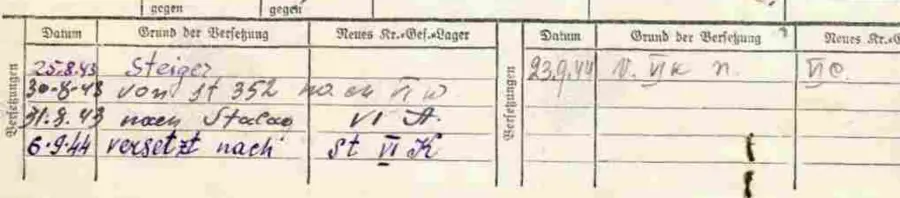 gegen gegen
Versetzungen
Datum Grund der Versetzung Neues Kr.=Gef.=Lager
25.8.43 Steiger
30-8-43 von St 352 nach VI
31.8.43 nach Stalag VI A.
6.9.44 versetzt nach St VI K
Versetzungen
Datum Grund der Versetzung Neues Kr.=G
23.9.44 V. VI K n. VI C.